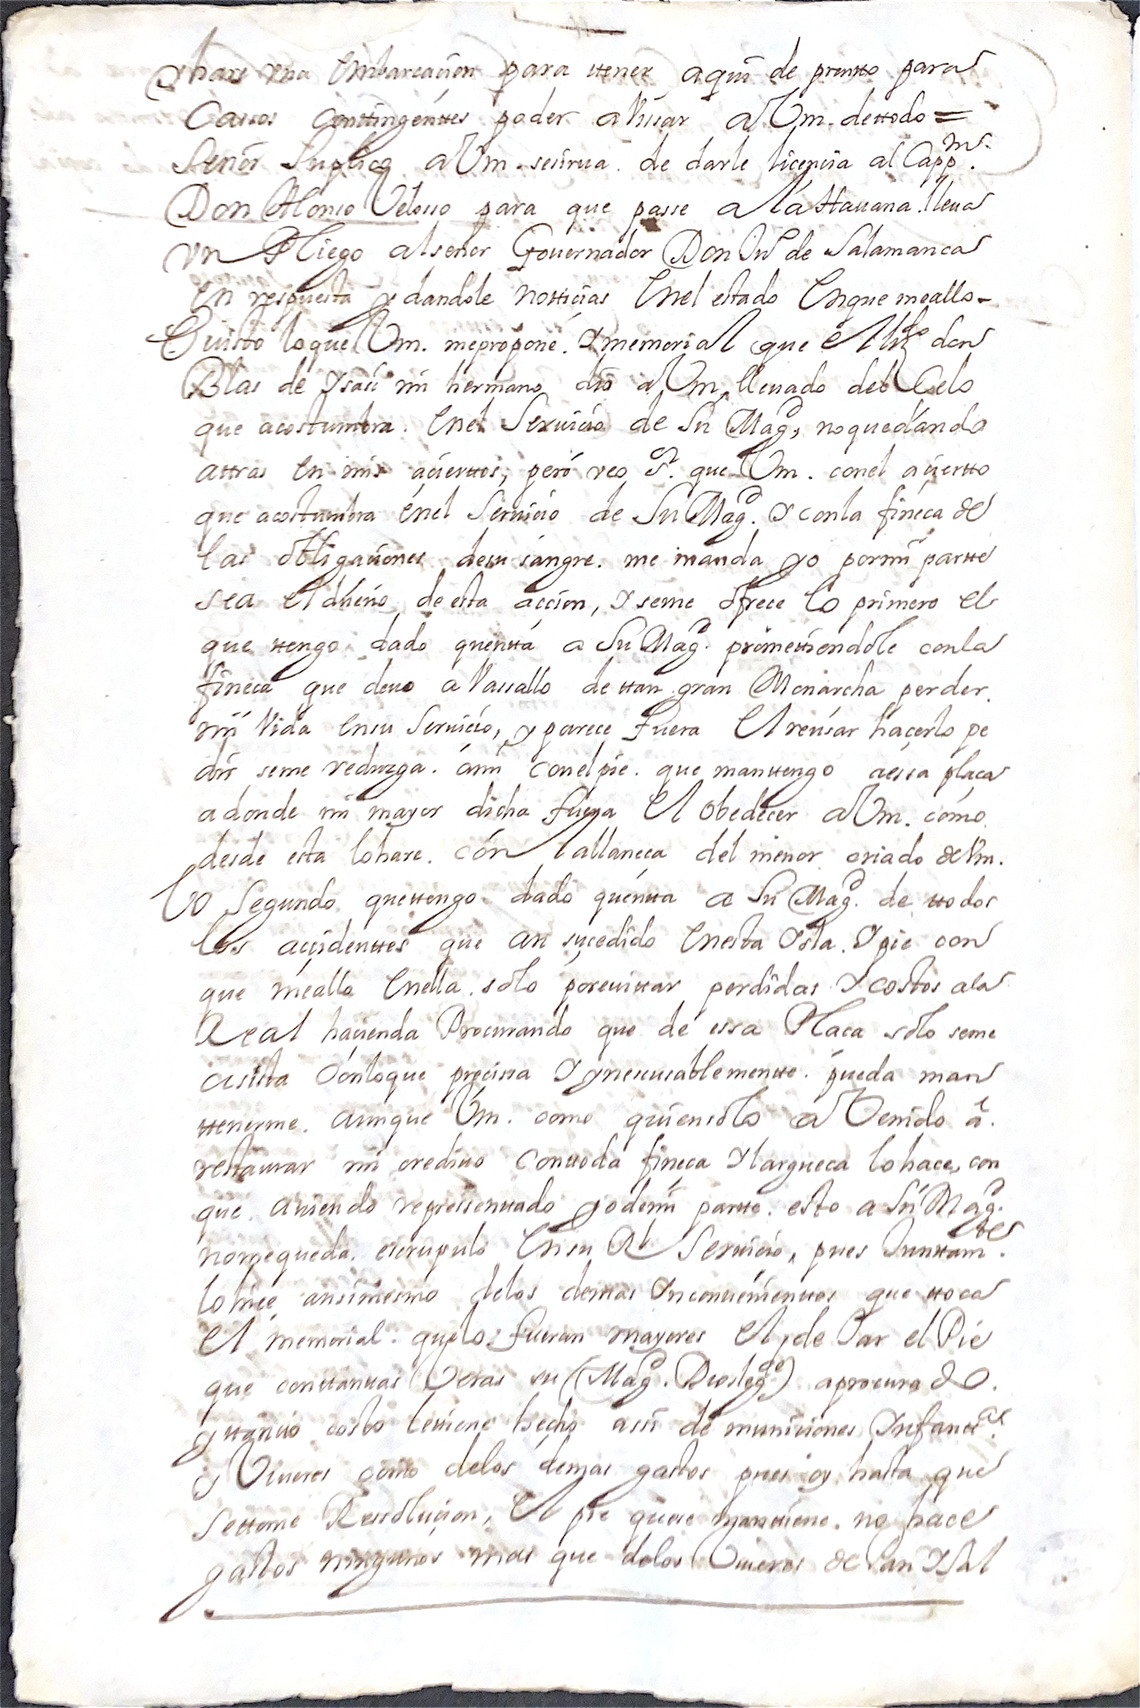 y hare Vna Embarcacion para ttener aqui de prontto para
Cassos Conttingenttes poder abissar a Vm. de ttodo =
Señor Suplico a Vm. se sirua de darle licencia al Capp.n
Don Alonso Velosso para que passe a la Hauana. lleua
vn Pliego al señor Gouernador Don Ju.o de Salamanca
en respuesta y dandole notticias Enel estado Enque meallo -
E uisto lo que Vm. mepropone. Y memorial que el don
Blas de Ysasi mi hermano dio a Vm. lleuado del Celo
que acostumbra. Enel Seruicio de Su Mag.d, no quedando
attras en mis acierttos, pero veo S.r que Vm. con el aciertto
que acostumbra enel Seruicio de Su Mag.d Y conla fineca de
las obligaciones desu sangre. me manda yo por mi partte
sea el dueño de esta accion, Y seme ofrece lo primero el
que ttengo dado quentta a Su Mag.d promettiendole conla
fineca que deuo a Vassallo de ttan gran Monarcha perder
mi Vida Ensu Seruicio, y parece fuera El reusar hacerlo pe
dir seme reduzga. aun conel pie. que manttengo aessa placa
adonde mi mayor dicha fuera El obedecer a Vm. como
desde esta lo hare. con la llaneca del menor criado de Vm.
Lo Segundo quettengo dado quentta a Su Mag.d de ttodos
los accidenttes que an sucedido Enesta Ysla. Y pie con
que me allo Enella. solo poreuittar perdidas Y costos ala
Real hacienda Procurando que de essa Placa solo seme
asista Conloque precissa Y ynescusablementte. pueda man
ttenerme. aunque Vm. como quiensolo a Venido a
restaurar mi creditto Conttoda fineca Y largueca lo hace, con
que auiendo repressenttado yo de mi partte. esto a Su Mag.d
nomequeda escrupulo Ensu Rl Seruicio, pues Junttam.te
lo hice ansimesmo delos demas Ynconuenienttes que ttoca
El memorial. que los fueran mayores El de Jar el Pie
que conttanttas Veras su (Mag.d Dios le g.e) a procurado.
y ttantto costo ttiene hecho assi de municiones Ynfantt.a
y Viueres como delos demas gastos pues oy hasta que
Settome Ressolucion, El pie que se manttiene. no hace
gastos ningunos mas que delos Viueres de Pan Y Sal